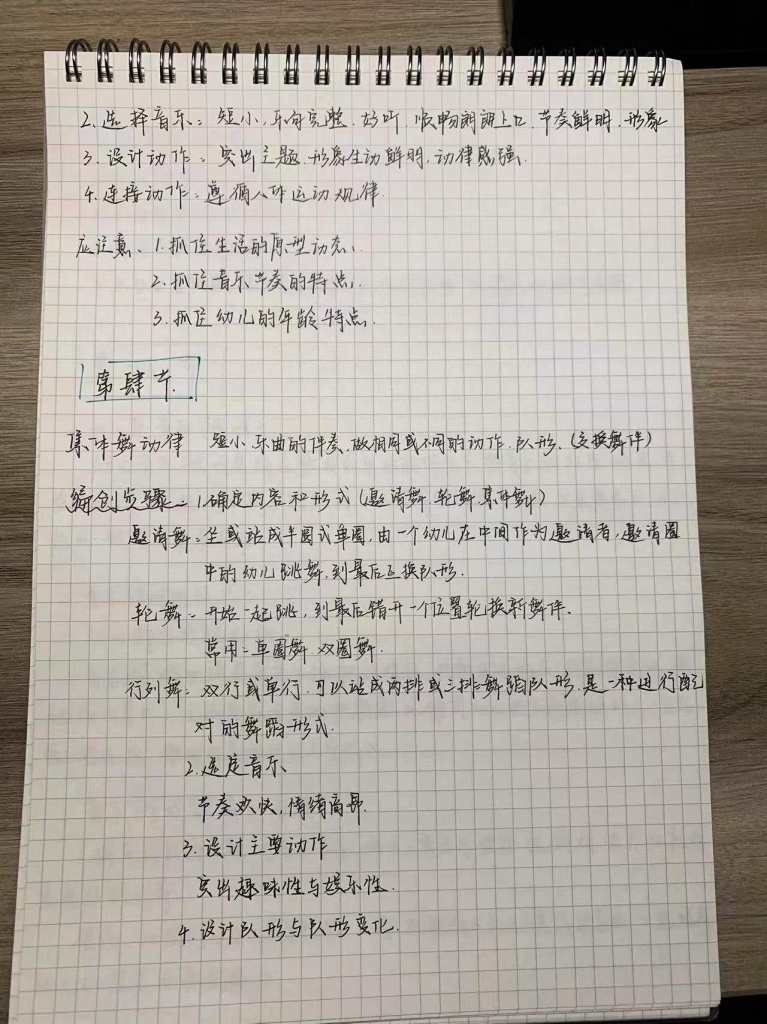 2. 选择音乐: 短小、乐句完整、好听、顺畅朗朗上口、节奏鲜明、形象
3. 设计动作: 突出主题、形象生动鲜明、动律感强.
4. 连接动作: 遵循人体运动规律.
应注意、1. 抓住生活的原型动态、
2. 抓住音乐节奏的特点、
3. 抓住幼儿的年龄特点.
第肆节.
集体舞动律 短小乐曲的伴奏、做相同或不同的动作、队形、(交换舞伴)
编创步骤: 1. 确定内容和形式(邀请舞、轮舞、集体舞)
邀请舞: 坐或站成半圆或单圈, 由一个幼儿在中间作为邀请者, 邀请圈
中的幼儿跳舞, 到最后互换队形.
轮舞: 开始一起跳, 到最后错开一个位置轮换新舞伴.
常用: 单圈舞 双圈舞.
行列舞: 双行或单行, 可以站成两排或三排舞蹈队形, 是一种进行配
对的舞蹈形式.
2. 选定音乐
节奏欢快, 情绪高昂.
3. 设计主要动作
突出趣味性与娱乐性.
4. 设计队形与队形变化.